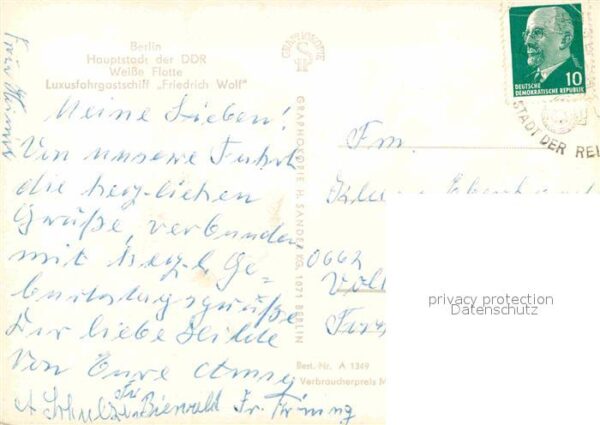 Berlin
Hauptstadt der DDR
Weiße Flotte
Luxusfahrgastschiff „Friedrich Wolf"
Meine Lieben!
Von unsere Fahrt
die herz-lichen
Grüße, verbunden
mit herzl. Ge-
burtstagsgrüße
Dir liebe Hilde
Von Eure Anny
A Schulz Bierwald Fr.
GRAPHOKOPIE
GRAPHOKOPIE H. SANDER KG, 1071 BERLIN
Best.-Nr. A 1349
Verbraucherpreis M
10
DEUTSCHE
DEMOKRATISCHE REPUBLIK
STADT DER REI
Fm.
0662
privacy protection
Datenschutz